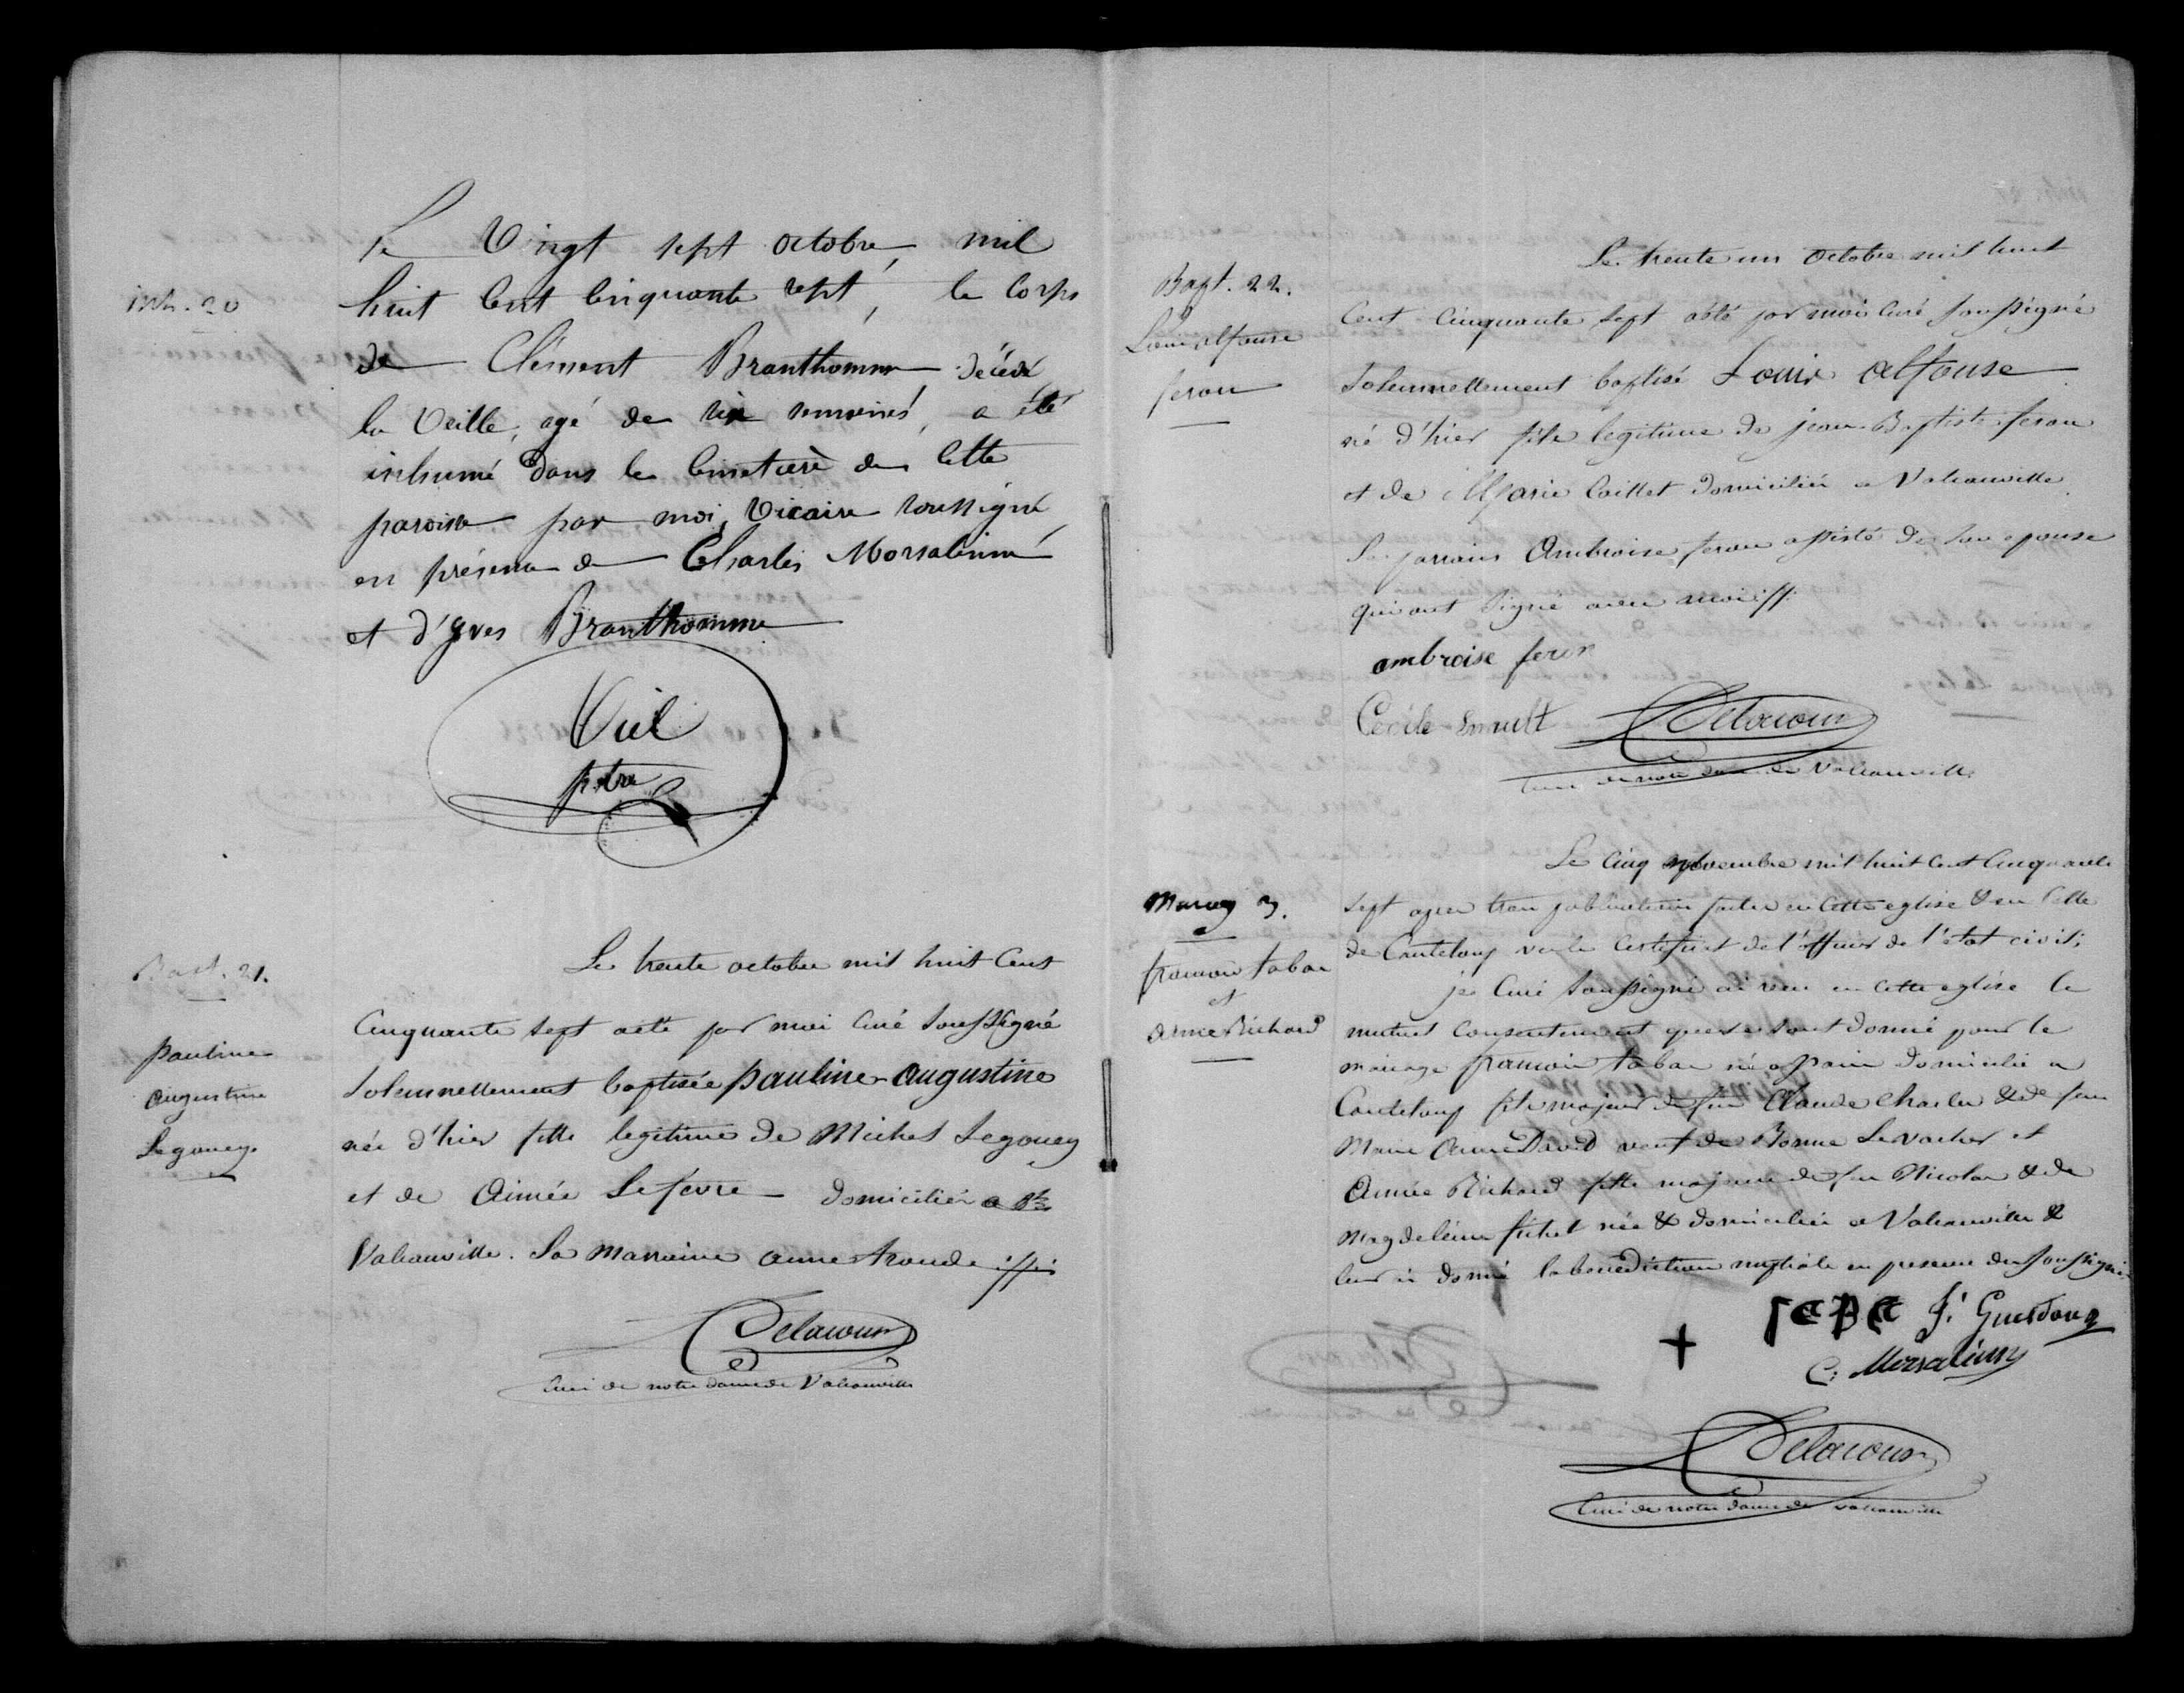 inh. 20
Le Vingt sept octobre, mil
huit Cent Cinquante sept, le Corps
de Clément Branthomme décédé
la Veille, agé de six semaines, a été
inhumé dans le Cimetière de Cette
paroisse par moi, Vicaire soussigné
en présence de Charles Morsalinne
et d'yves Branthomme
Viel
ptre
Bapt. 21.
pauline
augustine
Legouey
Le trente octobre mil huit Cent
Cinquante sept a été par moi Curé soussigné
solennellement baptisée pauline augustine
née d'hier fille legitime de Michel Legouey
et de Aimée Lefevre domiciliés a
Valcanville. La marraine anne troude
Delacour
Curé de notre dame de Valcanville
Bapt. 22.
Louis alfonse
feron
Le trente un octobre mil huit
Cent Cinquante sept a été par moi Curé soussigné
solennellement baptisé Louis alfonse
né d'hier fils legitime de jean-Baptiste feron
et de Marie Caillet domiciliés a Valcanville
Le parrain Ambroise feron assisté de son epouse
qui ont signé avec moi
ambroise feron
Cecile Enault Delacour
Curé de notre dame de Valcanville
Mariag 3.
francois tabar
et
aimée Richard
Le Cinq novembre mil huit Cent Cinquante
sept apres trois publications faites en Cette eglise & en Celle
de Canteloup vu le Certificat de l'officier de l'etat civil;
je Curé soussigné ai recu en Cette eglise le
mutuel Consentement que se sont donné pour le
mariage francois tabar né a domicilié a
Canteloup fils majeur de feu Claude Charles & de feue
Marie Anne David veuf de Bonne Levacher et
Aimée Richard fille majeure de feu Nicolas & de
Magdeleine fichet née & domiciliée a Valcanville &
leur ai donné la benediction nuptiale en presence des soussignés
+ F. Guesdon
C. Morsalinne
Delacour
Curé de notre dame de Valcanville